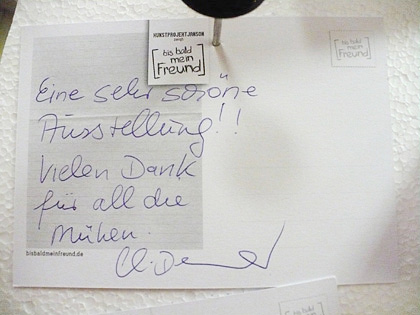 KUNSTPROJEKTJANSON
zeigt
bis bald
mein
Freund
bis bald
mein
Freund
Eine sehr schöne
Ausstellung!!
Vielen Dank
für all die
Mühen.
bisbaldmeinfreund.de
bis bald
mein